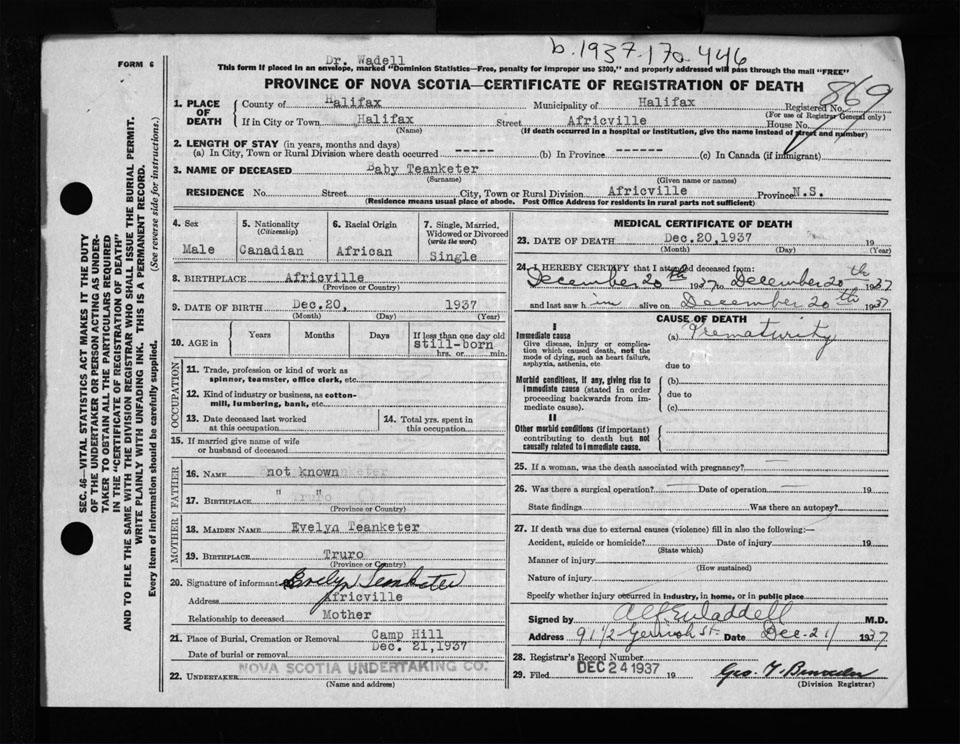 b. 1937-170-446
FORM 6
Dr. Wadell
This form if placed in an envelope, marked "Dominion Statistics—Free, penalty for improper use $300," and properly addressed will pass through the mail "FREE"
PROVINCE OF NOVA SCOTIA—CERTIFICATE OF REGISTRATION OF DEATH
869
1. PLACE OF DEATH
County of Halifax Municipality of Halifax Registered No.
(For use of Registrar General only)
If in City or Town Halifax Street Africville House No.
(Name) (If death occurred in a hospital or institution, give the name instead of street and number)
2. LENGTH OF STAY (in years, months and days)
(a) In City, Town or Rural Division where death occurred ------ (b) In Province ------- (c) In Canada (if immigrant)
3. NAME OF DECEASED Baby Teanketer
(Surname) (Given name or names)
RESIDENCE No. Street City, Town or Rural Division Africville Province N.S.
(Residence means usual place of abode. Post Office Address for residents in rural parts not sufficient)
4. Sex
Male
5. Nationality
(Citizenship)
Canadian
6. Racial Origin
African
7. Single, Married, Widowed or Divorced
(write the word)
Single
8. BIRTHPLACE Africville
(Province or Country)
9. DATE OF BIRTH Dec.20, 1937
(Month) (Day) (Year)
10. AGE in
Years Months Days If less than one day old
still-born
hrs. or min.
OCCUPATION
11. Trade, profession or kind of work as
spinner, teamster, office clerk, etc.
12. Kind of industry or business, as cotton-
mill, lumbering, bank, etc.
13. Date deceased last worked
at this occupation
14. Total yrs. spent in
this occupation
15. If married give name of wife
or husband of deceased
FATHER
16. NAME not known
17. BIRTHPLACE " "
Truro
(Province or Country)
MOTHER
18. MAIDEN NAME Evelyn Teanketer
19. BIRTHPLACE Truro
(Province or Country)
20. Signature of informant Evelyn Teanketer
Address Africville
Relationship to deceased Mother
21. Place of Burial, Cremation or Removal Camp Hill
Date of burial or removal Dec. 21,1937
NOVA SCOTIA UNDERTAKING CO.
22. UNDERTAKER
(Name and address)
MEDICAL CERTIFICATE OF DEATH
23. DATE OF DEATH Dec.20,1937 19
(Month) (Day) (Year)
24. I HEREBY CERTIFY that I attended deceased from:
December 20th 1937 to December 20th 1937
and last saw him alive on December 20th 1937
CAUSE OF DEATH
I
Immediate cause
Give disease, injury or complica-
tion which caused death, not the
mode of dying, such as heart failure,
asphyxia, asthenia, etc.
(a) Prematurity
due to
Morbid conditions, if any, giving rise to
immediate cause (stated in order
proceeding backwards from im-
mediate cause).
(b)
due to
(c)
II
Other morbid conditions (if important)
contributing to death but not
causally related to immediate cause.
25. If a woman, was the death associated with pregnancy?
26. Was there a surgical operation? Date of operation 19
State findings Was there an autopsy?
27. If death was due to external causes (violence) fill in also the following:—
Accident, suicide or homicide? Date of injury 19
(State which)
Manner of injury
(How sustained)
Nature of injury
Specify whether injury occurred in industry, in home, or in public place
Signed by Alf E Waddell M.D.
Address 91 1/2 Gerrish St. Date Dec-21 1937
28. Registrar's Record Number
29. Filed DEC 24 1937 19
(Division Registrar)
SEC. 46—VITAL STATISTICS ACT MAKES IT THE DUTY
OF THE UNDERTAKER OR PERSON ACTING AS UNDER-
TAKER TO OBTAIN ALL THE PARTICULARS REQUIRED
IN THE "CERTIFICATE OF REGISTRATION OF DEATH"
AND TO FILE THE SAME WITH THE DIVISION REGISTRAR WHO SHALL ISSUE THE BURIAL PERMIT.
WRITE PLAINLY WITH UNFADING INK. THIS IS A PERMANENT RECORD.
Every item of information should be carefully supplied. (See reverse side for instructions.)